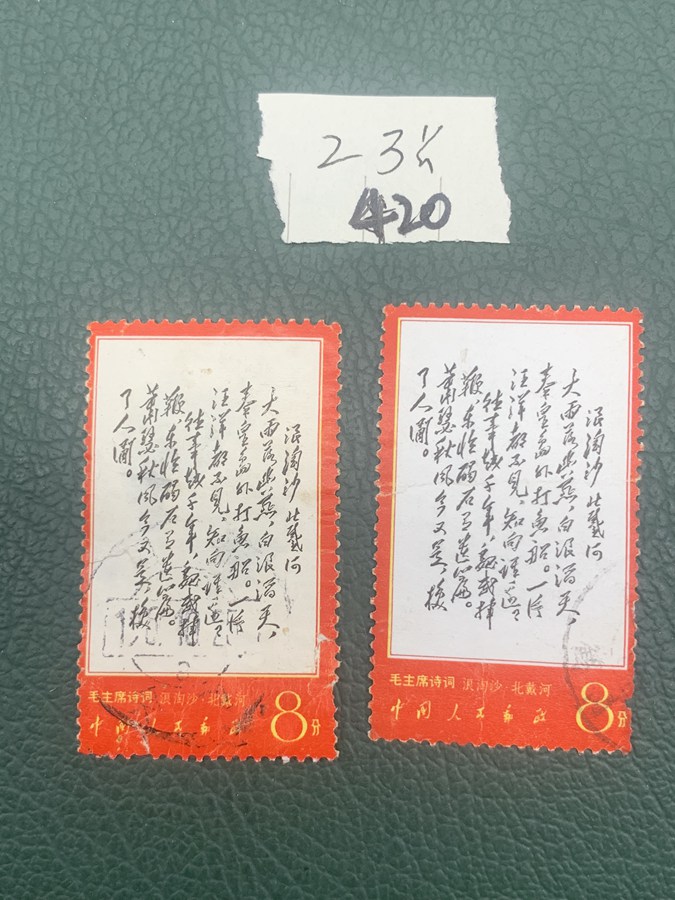 23
420
浪淘沙 北戴河
大雨落幽燕,白浪滔天,
秦皇岛外打鱼船。一片
汪洋都不见,知向谁边
往事越千年,魏武挥
鞭,东临碣石有遗篇。
萧瑟秋风今又是,换
了人间。
毛主席诗词 浪淘沙·北戴河
中国人民邮政 8分
浪淘沙 北戴河
大雨落幽燕,白浪滔天,
秦皇岛外打鱼船。一片
汪洋都不见,知向谁边
往事越千年,魏武挥
鞭,东临碣石有遗篇。
萧瑟秋风今又是,换
了人间。
毛主席诗词 浪淘沙·北戴河
中国人民邮政 8分